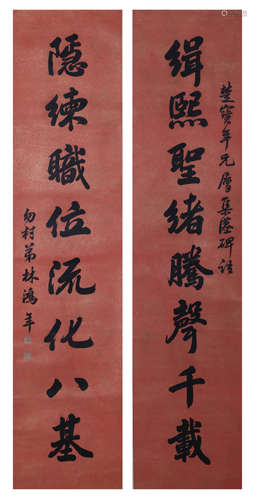 楚寶年兄屬集漢碑語
緝熙聖緒騰聲千載
隱練職位流化八基
勿村弟林鴻年